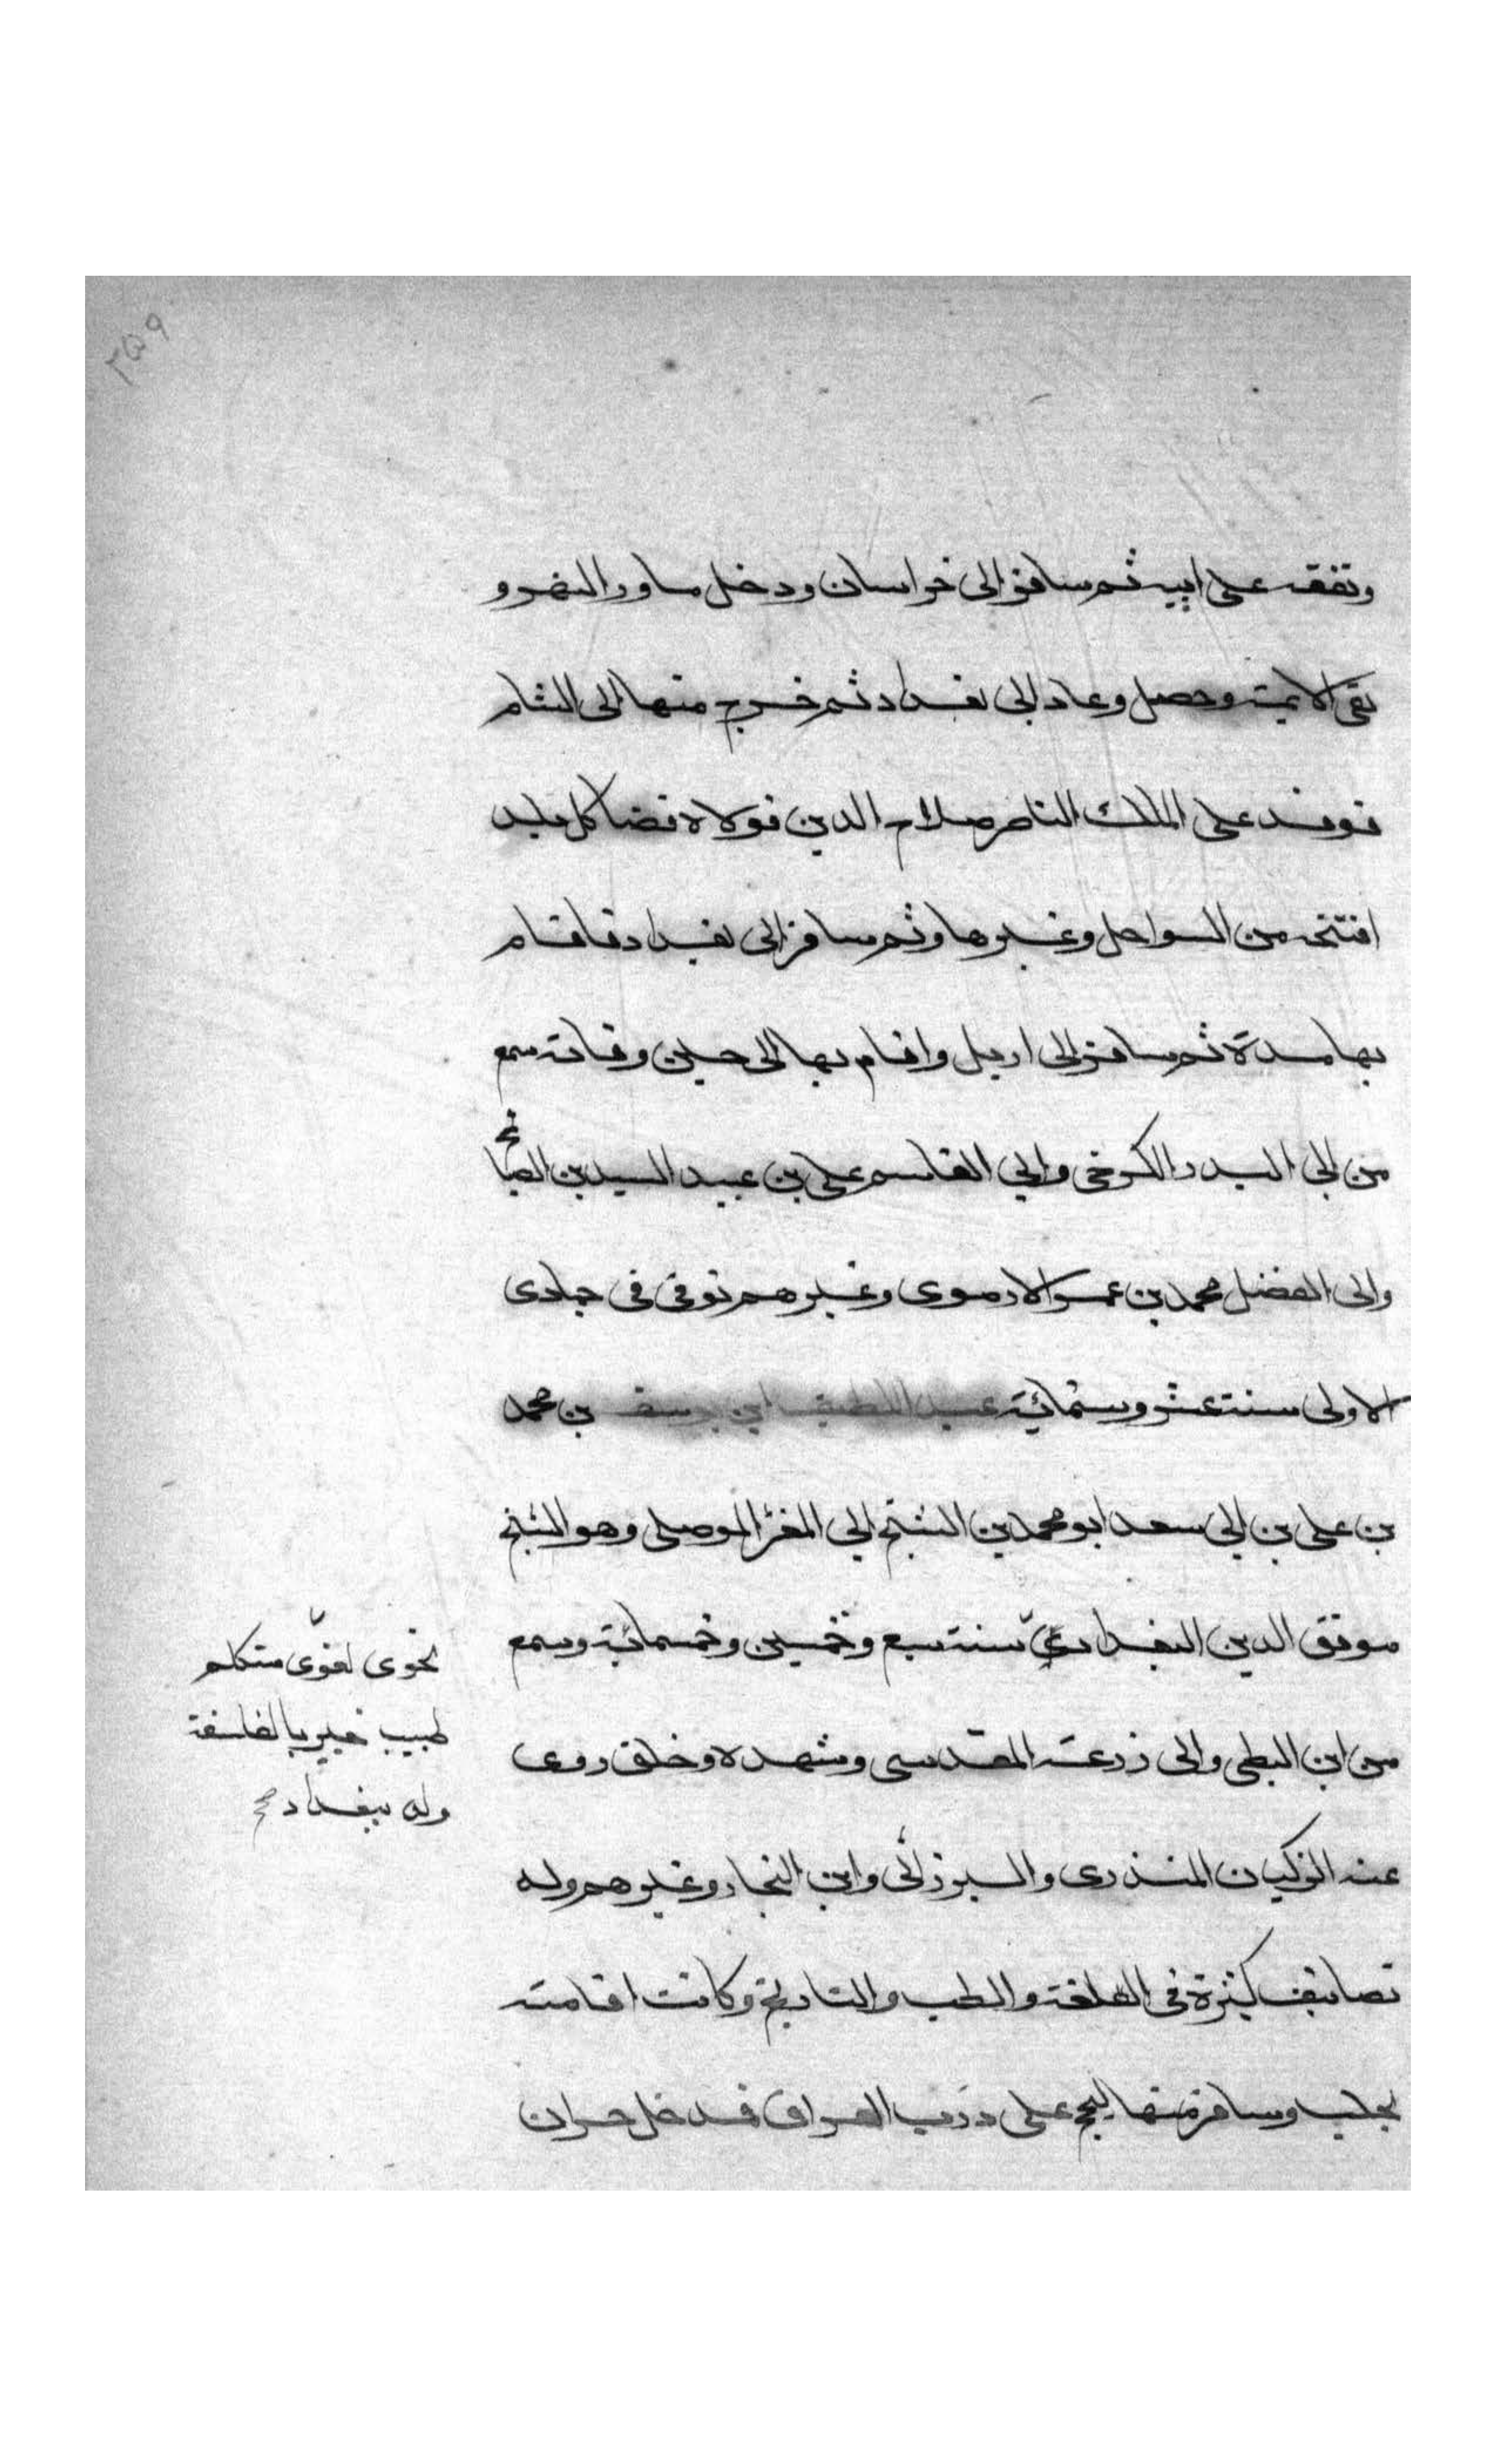 ٣٥٩
وتفقه على ابيه ثم سافر الى خراسان ودخل ماورا النهر و
لقى الايمة وحصل وعاد الى بغداد ثم خرج منها الى الشام
فوفد على الملك الناصر صلاح الدين فولاه قضا كل بلد
افتتحه من السواحل وغيرها وثم سافر الى بغداد فاقام
بها مدة ثم سافر الى اربل واقام بها الى حين وفاته سمع
من ابى البدر الكرخى وابى القاسم على بن عبد السيد بن الصباغ
وابى الفضل محمد بن عمر الارموى وغيرهم توفى فى جمادى
الاولى سنة عشر وستمائة عبد اللطيف ابن يوسف بن محمد
بن على بن ابى سعد ابو محمد بن الشيخ ابى العز الموصلى وهو الشيخ
موفق الدين البغدادى سنة سبع وخمسين وخمسمائة وسمع
من ابن البطى وابى زرعة المقدسى وشهده وخلق روى
عنه الزكيان المنذرى والبرزالى وابن النجار وغيرهم وله
تصانيف كثيرة فى اللغة والطب والتاريخ وكانت اقامته
بحلب وسافر منها ليحج على درب العراق فدخل حران
نحوى لغوىّ متكلم
طبيب خبير بالفلسفة
ولد ببغداد صح